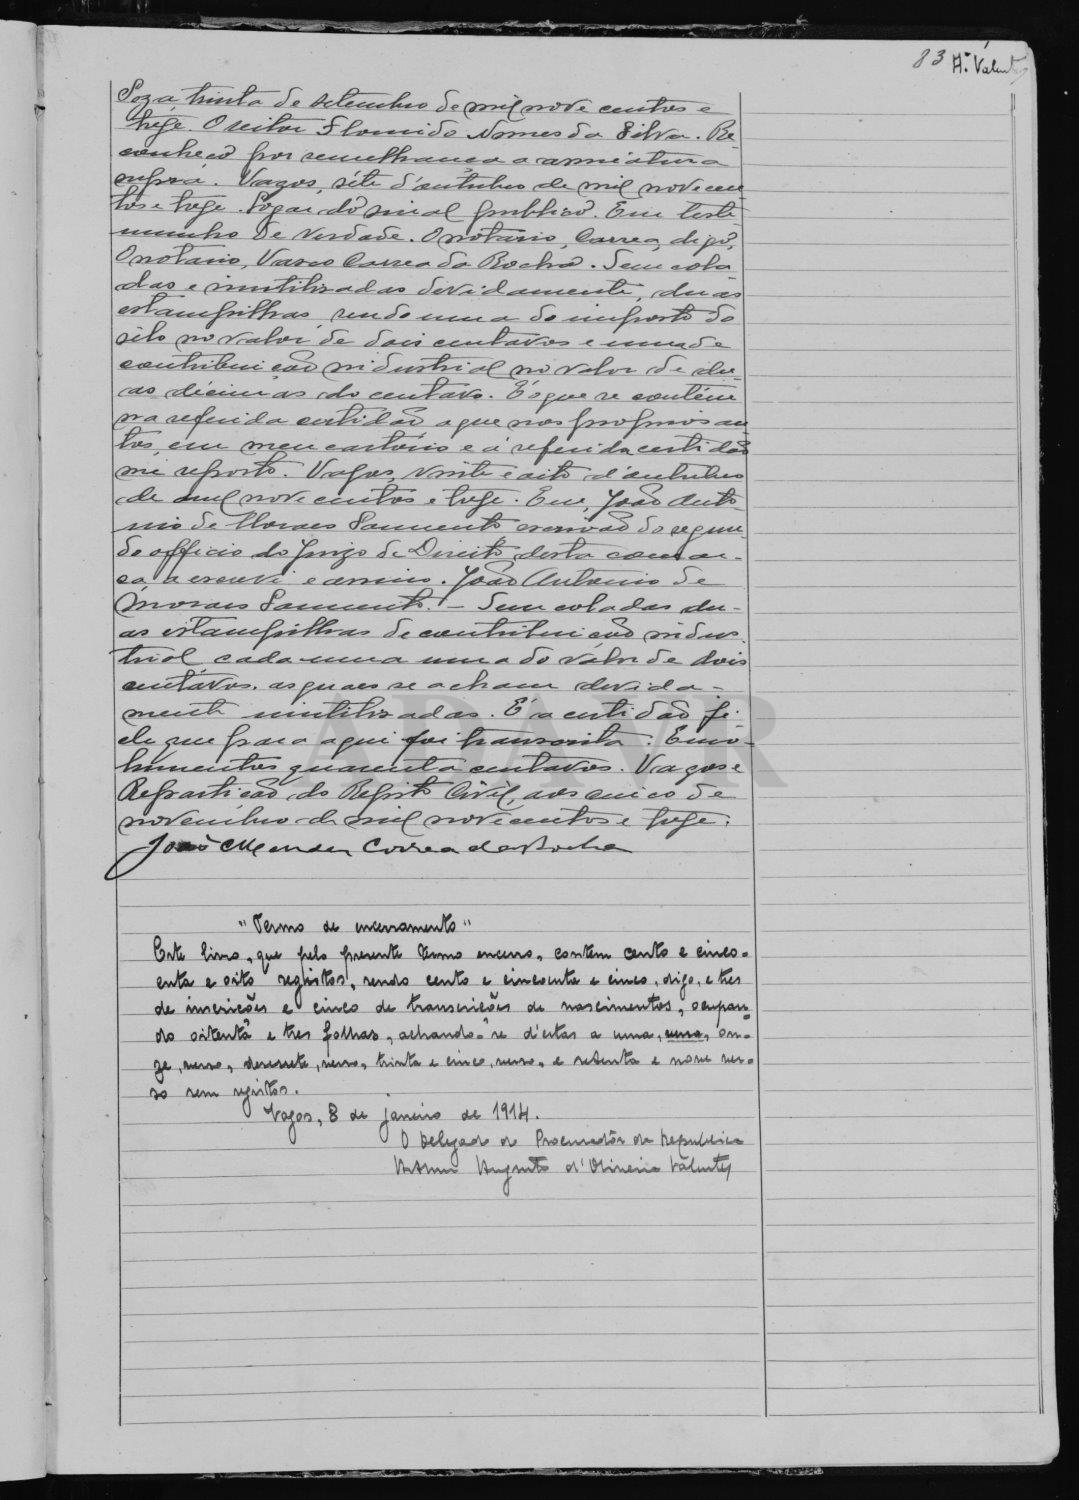 83 A. Valente
Soza, trinta de setembro de mil nove centos e
treze. O reitor Florindo Nunes da Silva. Re-
conheço por semelhança a assinatura
supra. Vagos, séte d'outubro de mil novecen
tos e treze. Logar do sinal publico. Em teste
munho de verdade. O notario, Correa, digo,
O notario, Vasco Correa da Rocha. Tem cola
das e inutilizadas devidamente, duas
estampilhas, sendo uma do imposto do
sêlo no valor de dois centavos e uma de
contribuição industrial no valor de du-
as décimas do centavo. É o que se contém
na referida certidão a que nos proprios au
tos, em meu cartório e á referida certidão
me reporto. Vagos, vinte e oito d'outubro
de mil nove centos e treze. Eu, João Anto-
nio de Moraes Sarmento escrivão do segun-
do officio do Juizo de Direito desta comar-
ca, a escrevi e assino. João Antonio de
Moraes Sarmento. — Tem coladas du-
as estampilhas de contribuição indus-
trial, cada uma uma do valor de dois
centavos, as quaes se acham devida-
mente inutilizadas. É a certidão fi-
el que para aqui foi transcrita. Emo-
lumentos quarenta centavos. Vagos e
Repartição do Registo Civil, aos cinco de
novembro de mil novecentos e treze.
João Mendes Correa da Rocha
"Termo de encerramento"
Este livro, que pelo presente termo encerro, contem cento e cinco-
enta e oito registos, sendo cento e cincoenta e cinco, digo, e tres
de inscrições e cinco de transcrições de nascimentos, ocupan-
do oitenta e tres folhas, achando-se d'estas a uma, verso, on-
ze, verso, dezesete, verso, trinta e cinco, verso, e setenta e nove ver-
so sem registos.
Vagos, 8 de janeiro de 1914.
O Delegado do Procurador da Republica
Augusto d'Oliveira Valente
ADAVR